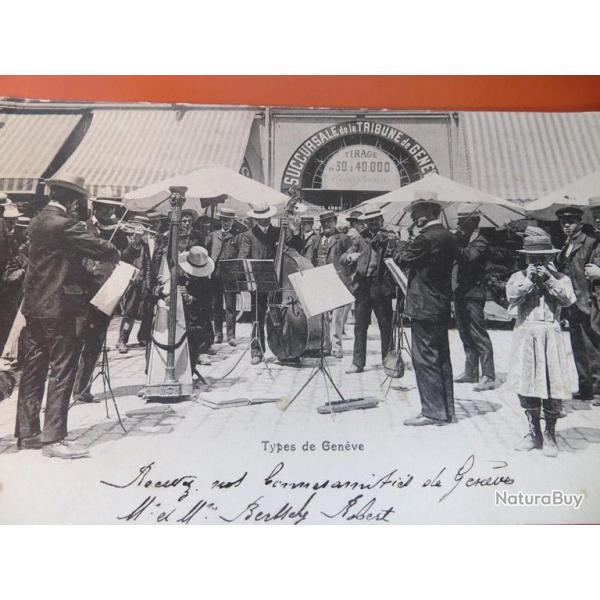 SUCCURSALE de la TRIBUNE de GENÈVE
TIRAGE
30 à 40.000
Types de Genève
Recevez nos de Genève
Mr et Mme Robert
NaturaBuy